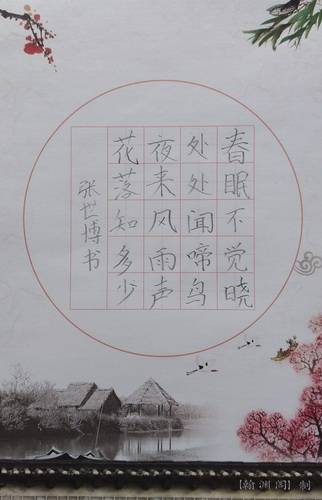 春眠不觉晓
处处闻啼鸟
夜来风雨声
花落知多少
张世博书
【翰渊阁】制